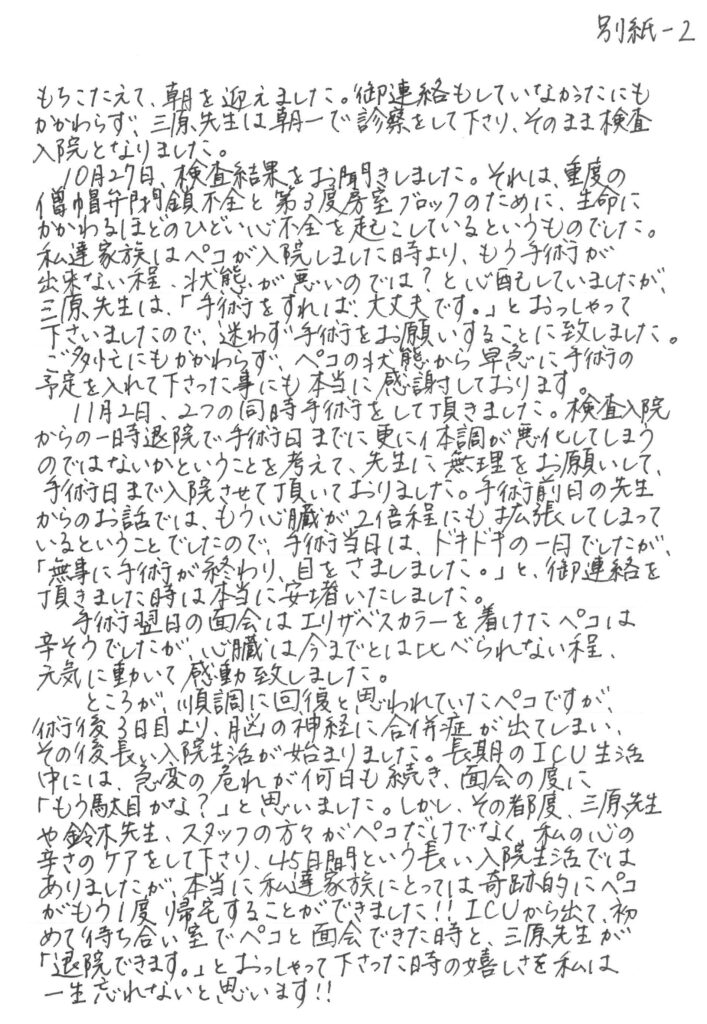 別紙-2
もちこたえて、朝を迎えました。御連絡もしていなかったにも
かかわらず、三原先生は朝一で診察をして下さり、そのまま検査
入院となりました。
10月27日、検査結果をお聞きしました。それは、重度の
僧帽弁閉鎖不全と第3度房室ブロックのために、生命に
かかわるほどのひどい心不全を起こしているというものでした。
私達家族はペコが入院しました時より、もう手術が
出来ない程、状態が悪いのでは?と心配していましたが、
三原先生は、「手術をすれば、大丈夫です。」とおっしゃって
下さいましたので、迷わず手術をお願いすることに致しました。
ご多忙にもかかわらず、ペコの状態から早急に手術の
予定を入れて下さった事にも本当に感謝しております。
11月2日、2つの同時手術をして頂きました。検査入院
からの一時退院で手術日までに更に体調が悪化してしまう
のではないかということを考えて、先生に無理をお願いして、
手術日まで入院させて頂いておりました。手術前日の先生
からのお話では、もう心臓が2倍程にも拡張してしまって
いるということでしたので、手術当日は、ドキドキの一日でしたが、
「無事に手術が終わり、目をさましました。」と、御連絡を
頂きました時は本当に安堵いたしました。
手術翌日の面会はエリザベスカラーを着けたペコは
辛そうでしたが、心臓は今までとは比べられない程、
元気に動いて感動致しました。
ところが、順調に回復と思われていたペコですが、
術後3日目より、脳の神経に合併症が出てしまい、
その後長い入院生活が始まりました。長期のICU生活
中には、急変の危れが何日も続き、面会の度に
「もう駄目かな?」と思いました。しかし、その都度、三原先生
や鈴木先生、スタッフの方々がペコだけでなく、私の心の
辛さのケアをして下さり、45日間という長い入院生活では
ありましたが、本当に私達家族にとっては奇跡的にペコ
がもう1度帰宅することができました!!ICUから出て、初
めて待ち合い室でペコと面会できた時と、三原先生が
「退院できます。」とおっしゃって下さった時の嬉しさを私は
一生忘れないと思います!!